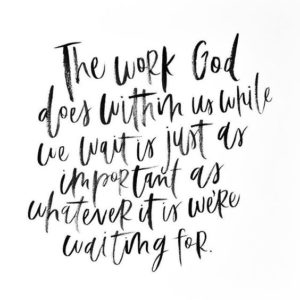 The work God
does within us while
we wait is just as
important as
whatever it is we're
waiting for.